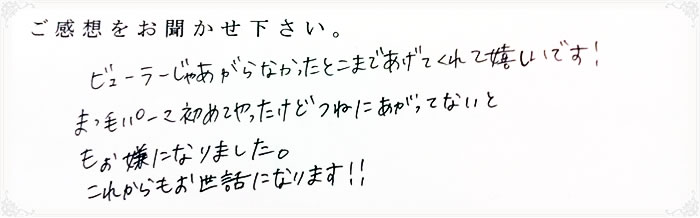 ご感想をお聞かせ下さい。
ビューラーじゃあがらなかったとこまであげてくれて嬉しいです!
まつ毛パーマ初めてやったけどつねにあがってないと
もお嫌になりました。
これからもお世話になります!!